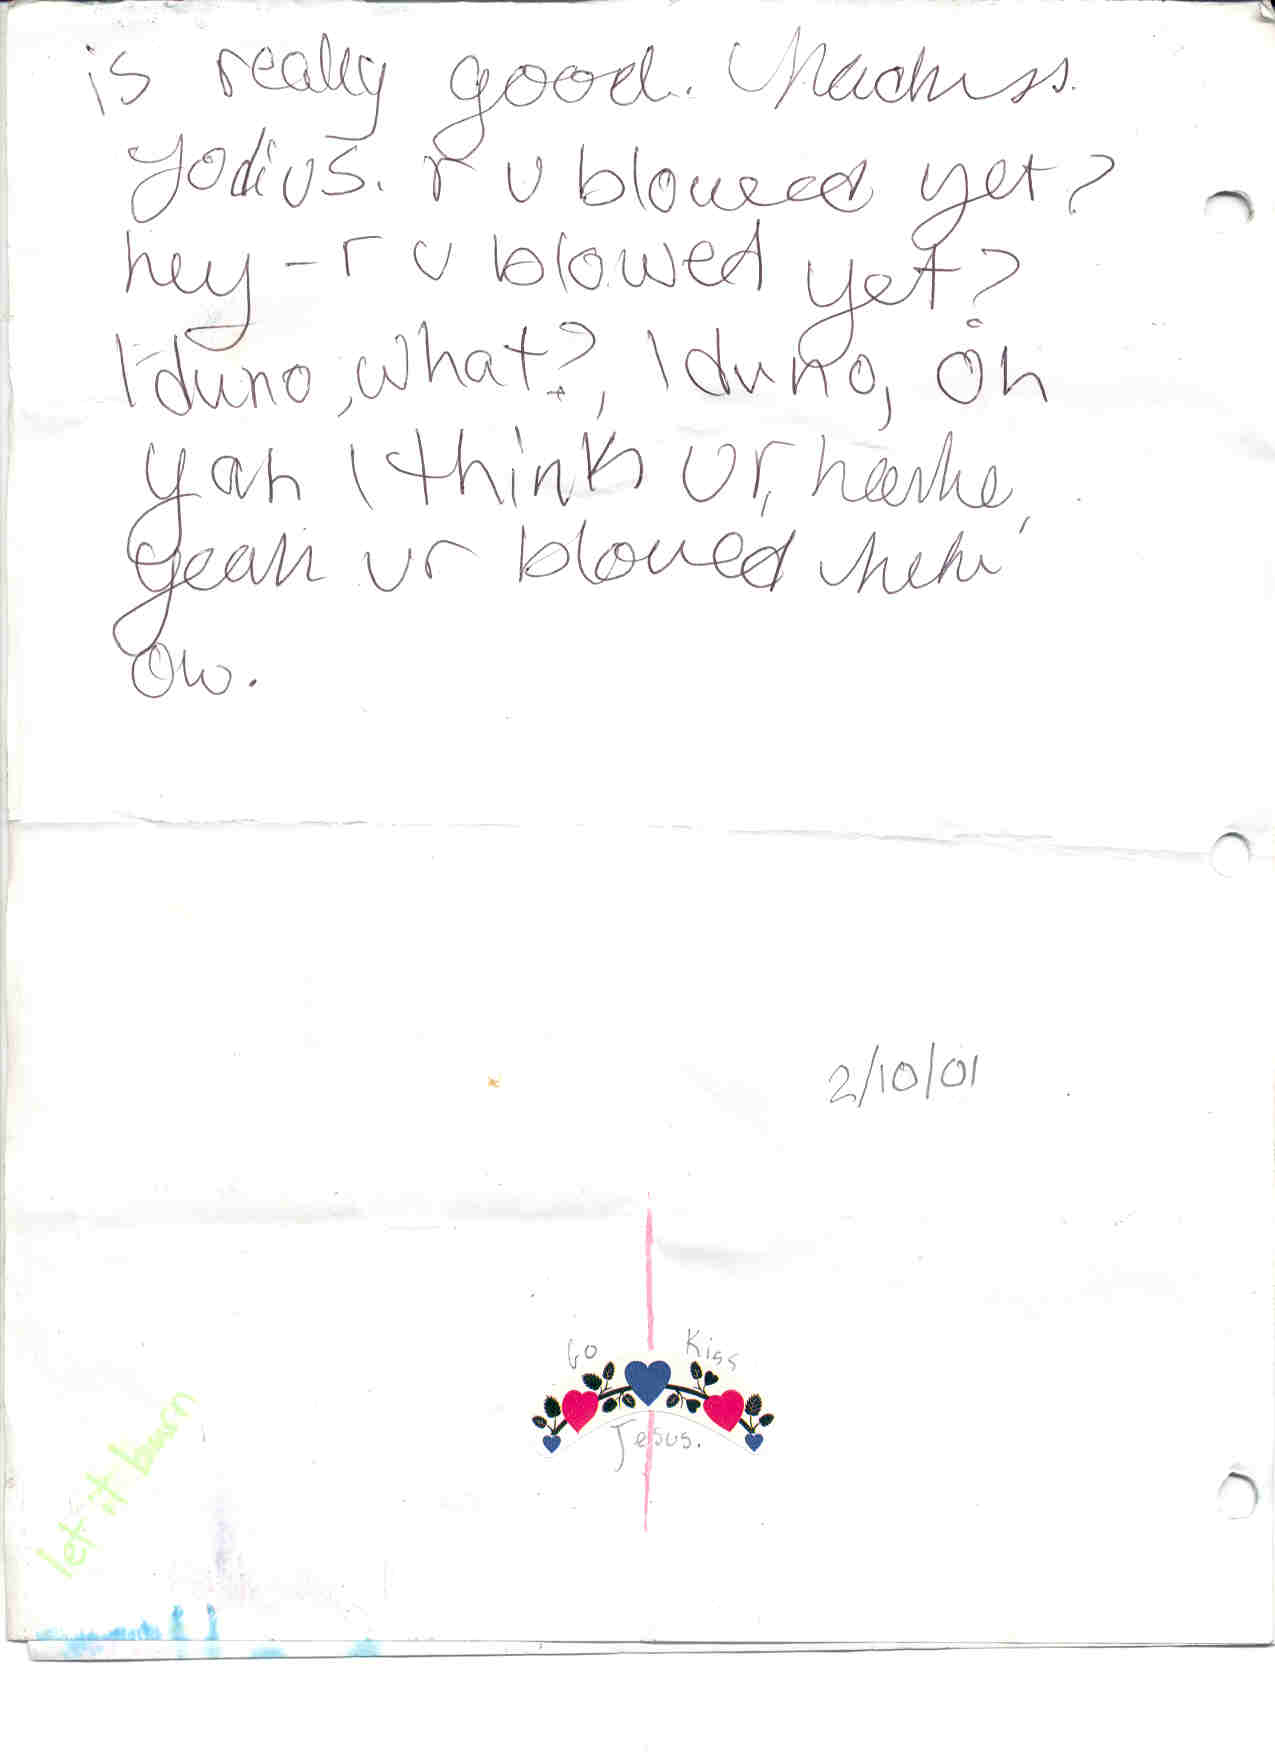 is really good. Madness.
yodius. r u blowed yet?
hey - r u blowed yet?
I duno, what?, I duno, oh
yah I think ur,
yeah ur blowed hehe
ow.
2/10/01
Go Kiss
Jesus.
let it burn